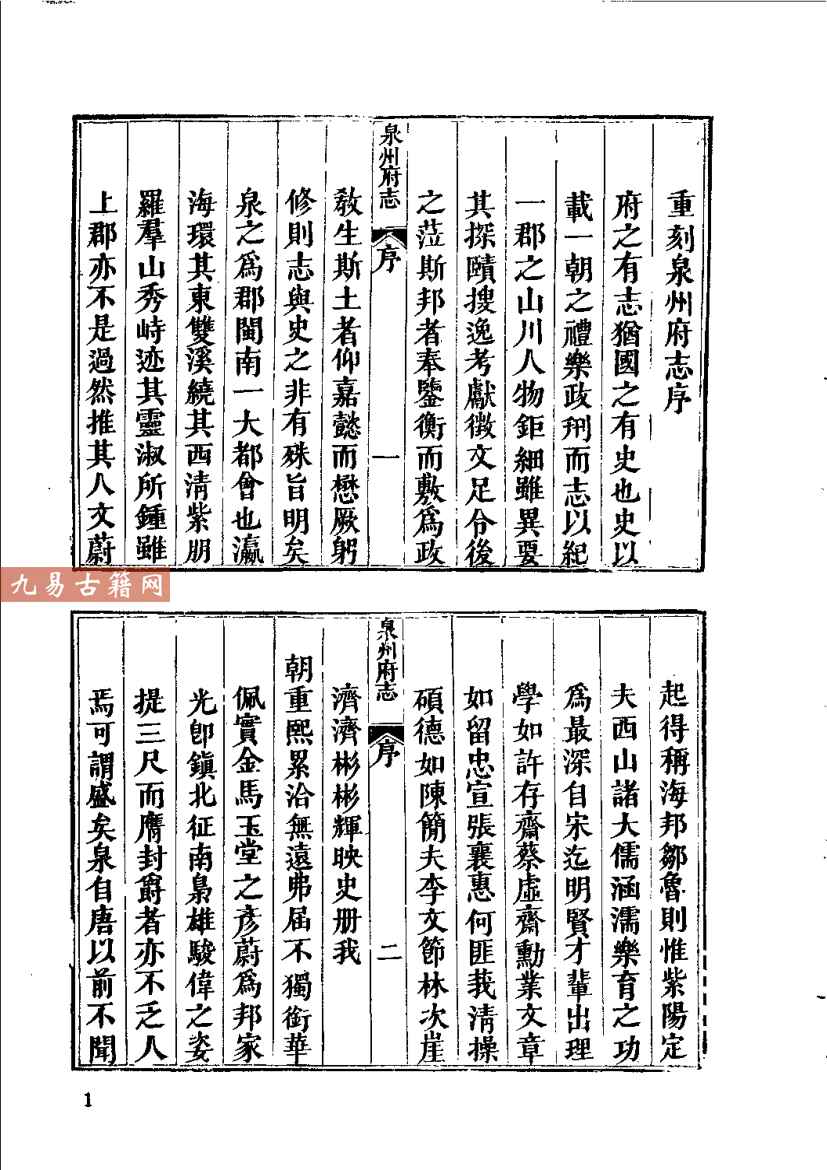 重刻泉州府志序
府之有志猶國之有史也史以
載一朝之禮樂政刑而志以紀
一郡之山川人物鉅細雖異要
其探賾搜逸考獻徵文足令後
之蒞斯邦者奉鑒衡而敷爲政
泉州府志
序
一
教生斯土者仰嘉懿而懋厥躬
修則志與史之非有殊旨明矣
泉之爲郡閩南一大都會也瀛
海環其東雙溪繞其西清紫朋
羅羣山秀峙迹其靈淑所鍾雖
上郡亦不是過然推其人文蔚
起得稱海邦鄒魯則惟紫陽定
夫西山諸大儒涵濡樂育之功
爲最深自宋迄明賢才輩出理
學如許存齋蔡虛齋勳業文章
如留忠宣張襄惠何匪莪清操
碩德如陳簡夫李文節林次崖
泉州府志
序
二
濟濟彬彬輝映史册我
朝重熙累洽無遠弗届不獨銜華
佩實金馬玉堂之彥蔚爲邦家
光卽鎭北征南梟雄駿偉之姿
提三尺而膺封爵者亦不乏人
焉可謂盛矣泉自唐以前不聞
九易古籍网
1